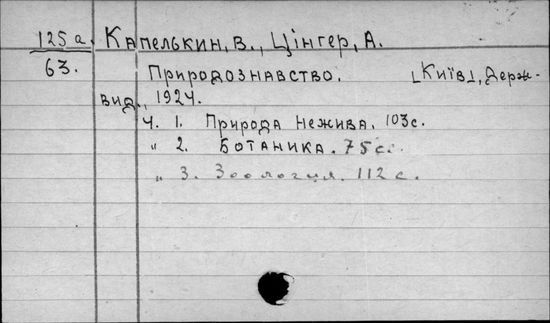 125а. Капелькин, В., Цінгер, А.
63. Природознавство. [Київ], Держ-
вид., 1924.
ч. 1. Природа нежива. 103с.
" 2. Ботаника. 75с.
" 3. Зоологія. 112 с.